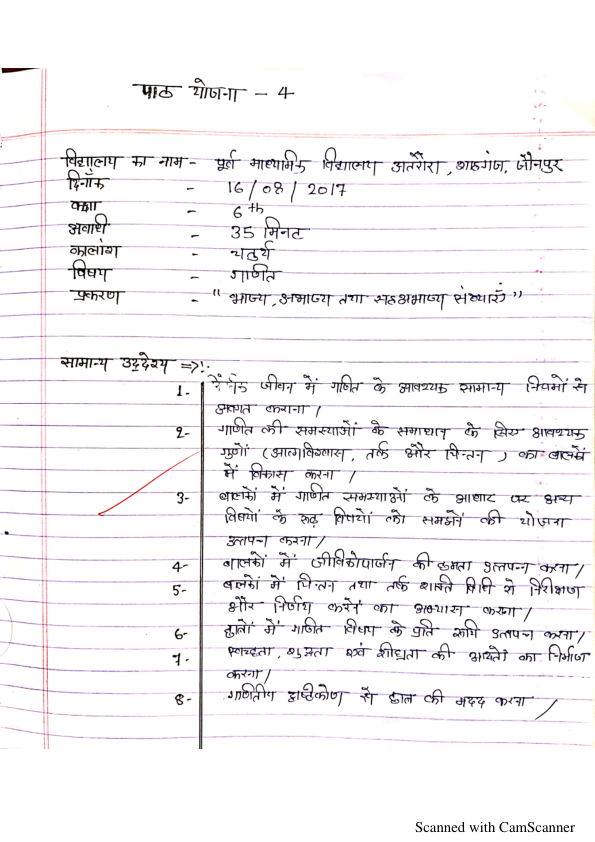 पाठ योजना - 4
विद्यालय का नाम - पूर्व माध्यमिक विद्यालय अतरौरा, शाहगंज, जौनपुर
दिनाँक - 16/08/2017
कक्षा - 6th
अवधि - 35 मिनट
कालांश - चतुर्थ
विषय - गणित
प्रकरण - "भाज्य, अभाज्य तथा सहअभाज्य संख्याएँ"
सामान्य उद्देश्य =>:
1- दैनिक जीवन में गणित के आवश्यक सामान्य नियमों से
अवगत कराना।
2- गणित की समस्याओं के समाधान के लिए आवश्यक
गुणों (आत्मविश्वास, तर्क और चिन्तन) का बालकों
में विकास करना।
3- बालकों में गणित समस्याओं के आधार पर अन्य
विषयों के विषयों को समझने की योजना
उत्तपन्न करना।
4- बालकों में जीविकोपार्जन की क्षमता उत्तपन्न करना।
5- बालकों में चिन्तन तथा तर्क शक्ति विधि से निरीक्षण
और निर्णय करने का अभ्यास कराना।
6- छात्रों में गणित विषय के प्रति रूचि उत्तपन्न करना।
7- स्वच्छता, शुध्दता एवं शीघ्रता की आदतों का निर्माण
करना।
8- गणितीय दृष्टिकोण से छात्र की मदद करना।
Scanned with CamScanner